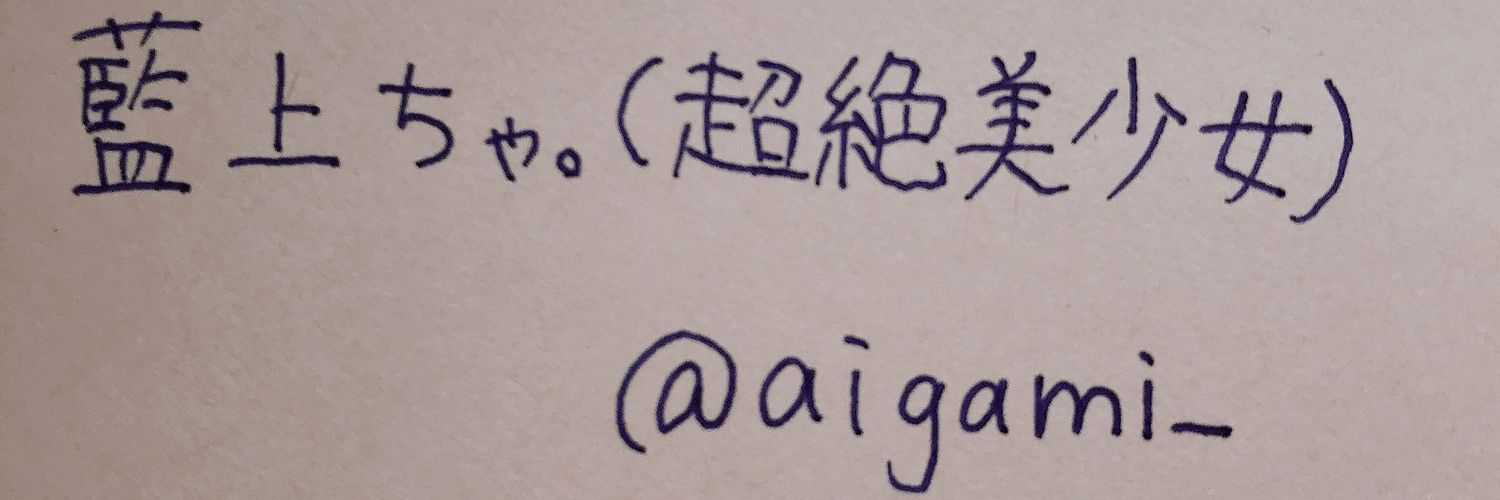 藍上ちゃ。(超絶美少女)
@aigami_